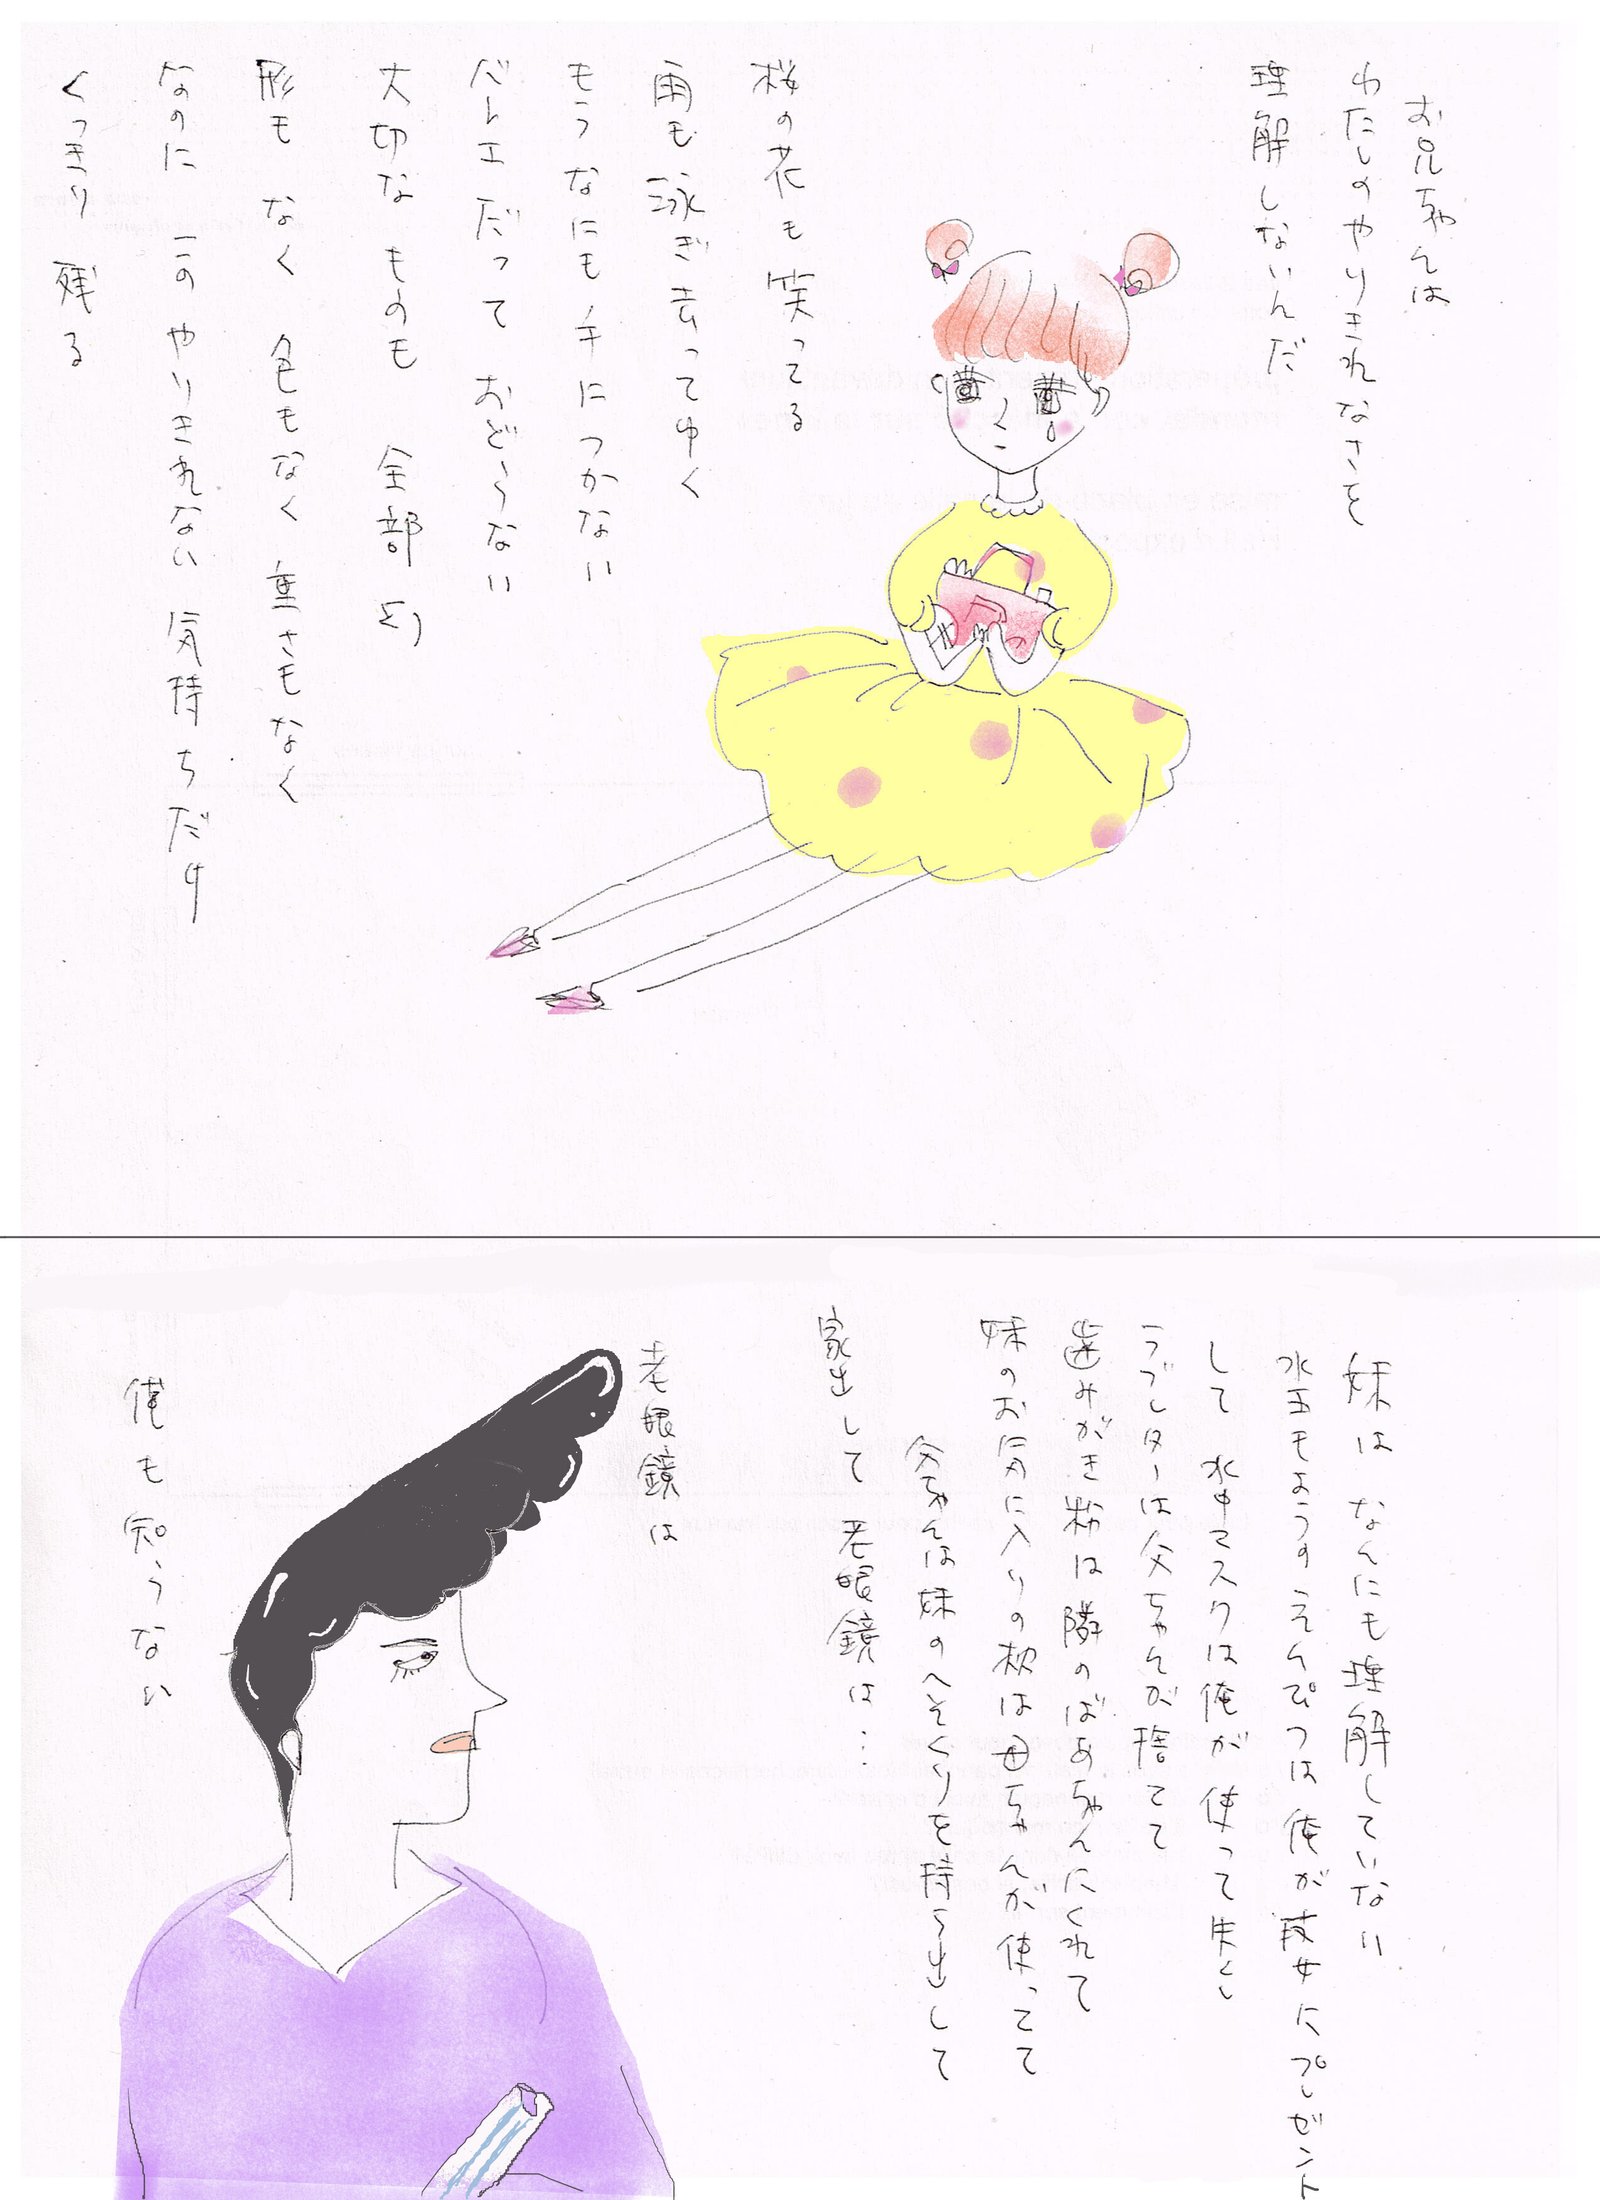 お兄ちゃんは
わたしのやりきれなさを
理解しないんだ
桜の花も笑ってる
雨も泳ぎ去ってゆく
もうなにも手につかない
バレエだっておどらない
大切なものも 全部
形も なく 色もなく 重さもなく
なのに このやりきれない 気持ちだけ
くっきり 残る
妹は なんにも理解していない
水玉もようのえんぴつは俺が彼女にプレゼント
して 水中マスクは俺が使って失くし
ラブレターは父ちゃんが捨てて
歯みがき粉は隣のばあちゃんにくれて
妹のお気に入りの枕は母ちゃんが使ってて
父ちゃんは妹のへそくりを持ち出して
家出して 老眼鏡は…
老眼鏡は
俺も知らない